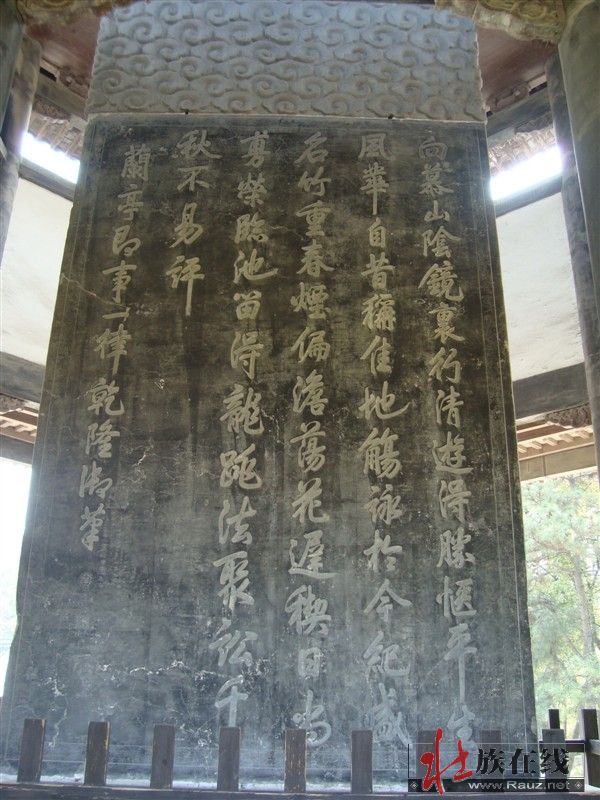 向慕山陰鏡裏行清遊得勝愜平生
風華自昔稱佳地觴詠於今紀盛
名竹重春煙偏澹蕩花遲禊日尚
敷榮臨池留得龍跳法聚訟千
秋不易評
蘭亭即事一律乾隆御筆
壮族在线
www.Rauz.net